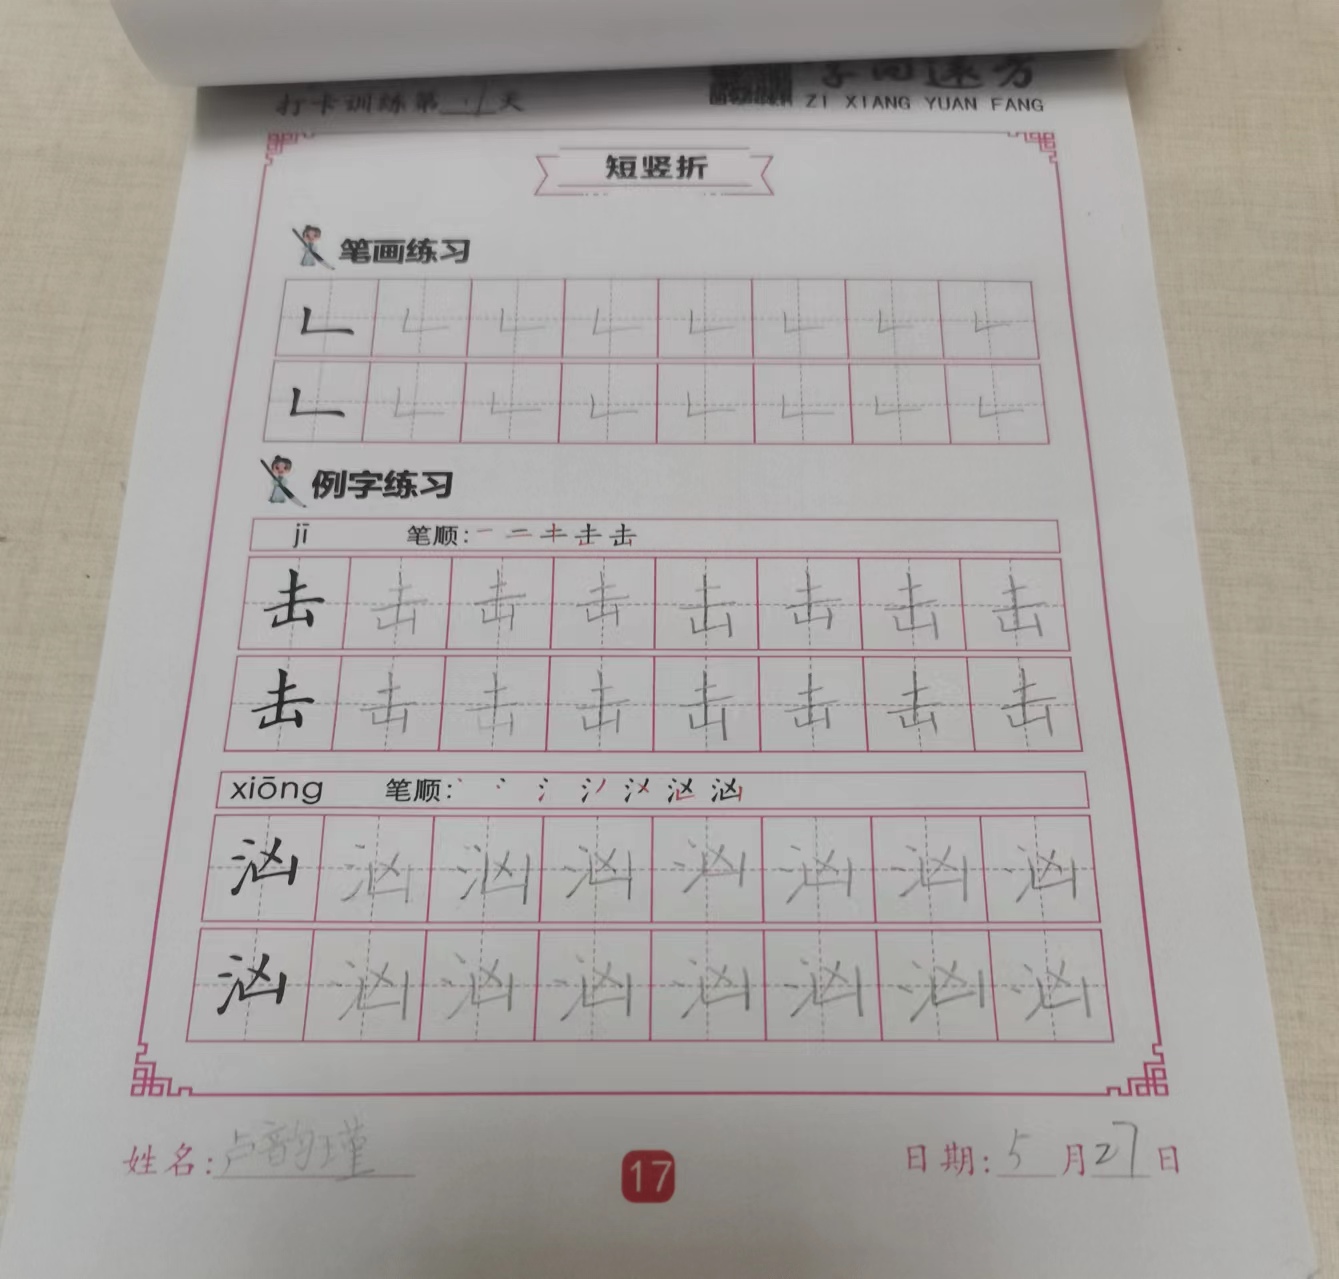 打卡训练第 1 天
字向远方
ZI XIANG YUAN FANG
短竖折
笔画练习
例字练习
jī 笔顺: 一 二 キ 击 击
击 击 击 击 击 击 击 击
击 击 击 击 击 击 击 击
xiōng 笔顺: 汹
汹 汹 汹 汹 汹 汹 汹 汹
汹 汹 汹 汹 汹 汹 汹 汹
姓名: 卢韵瑾
17
日期: 5 月 27 日